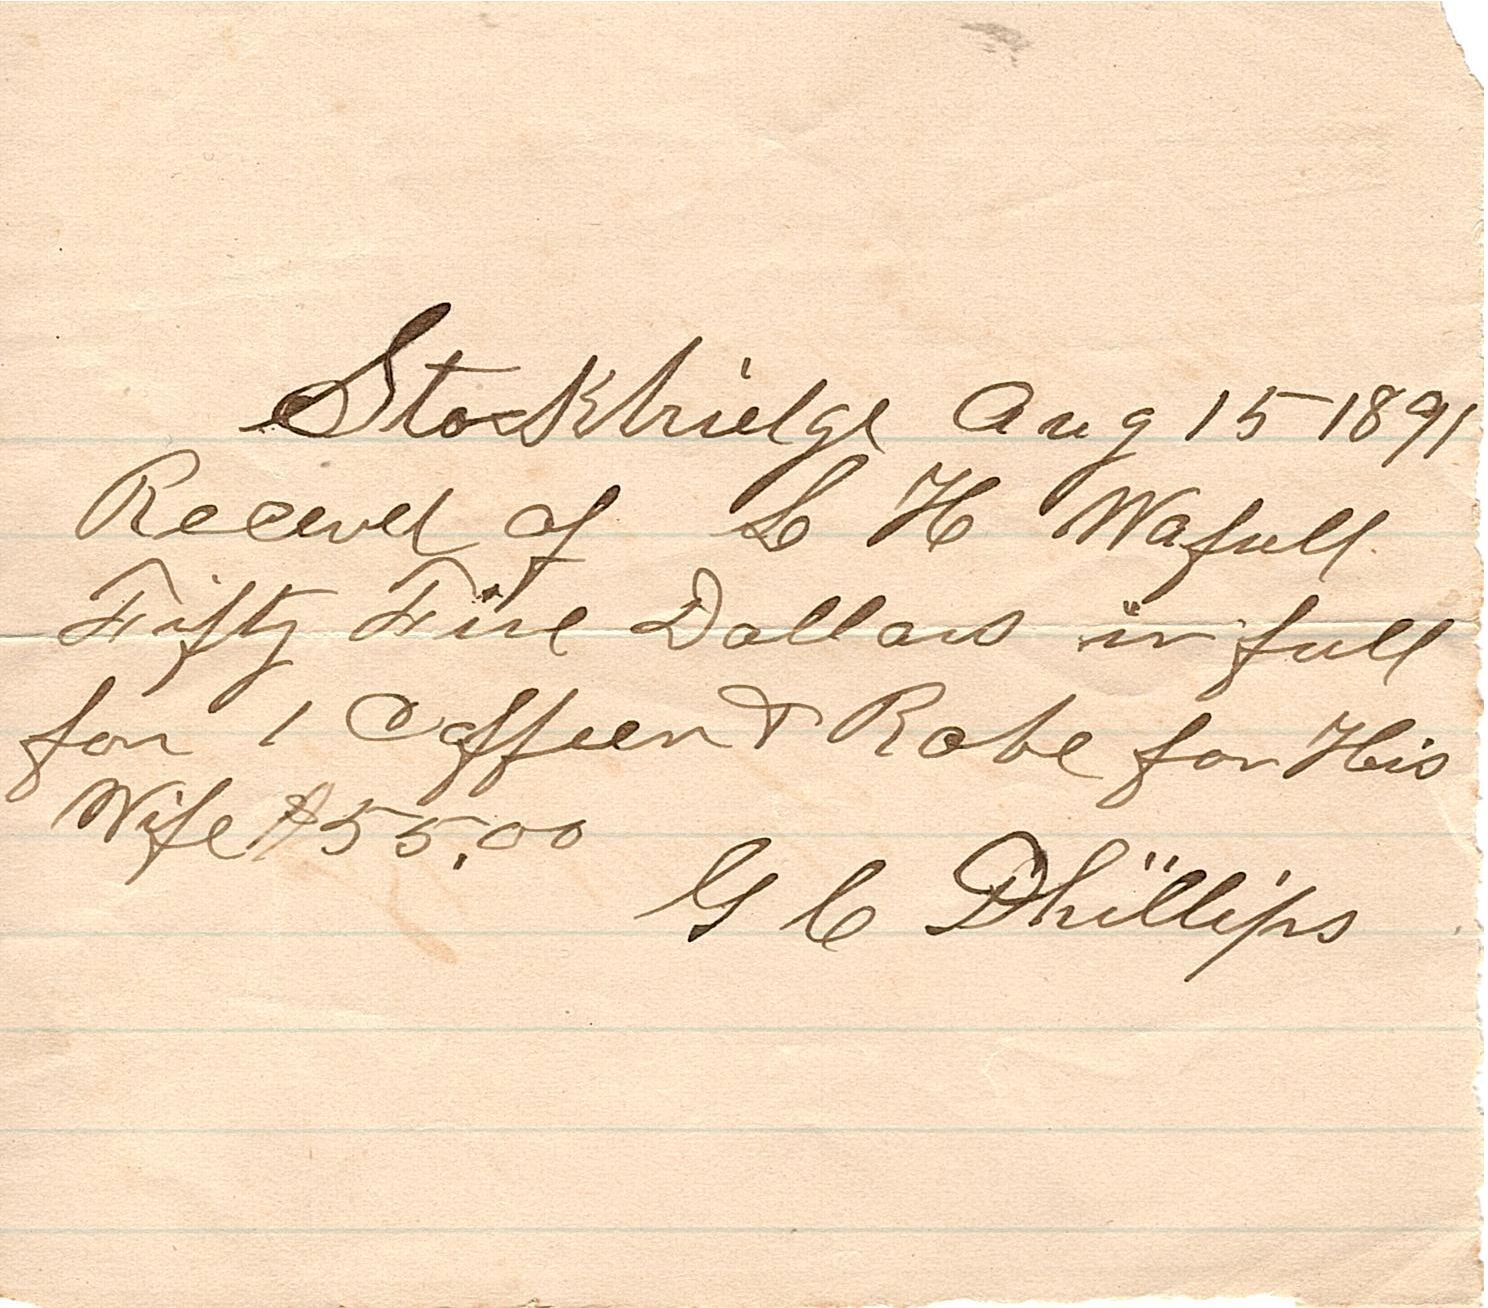 Stockbridge Aug 15 1891
Receved of L H Wafull
Fifty Five Dollars in full
for 1 Coffeen & Robe for His
Wife $55.00
G C Phillips